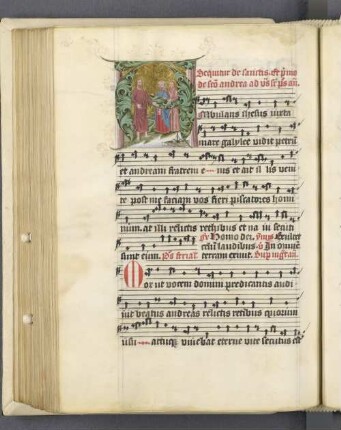 Sequitur de sanctis. et p̄mo
de sc̄o andrea ad vs̄ sr̄ p̄s an̄.
Ambulans ihesus iuxta
mare galylee vidit petrū
et andream fratrem e nis et ait il lis veni
te post me faciam vos fieri piscatores homi
num. at illi relictis rethibus et na ui secuti
Homo dei. ymꝰ Exultet
celū laudibus. v̄ In omnē
sunt eum. terram exiuit. Sup mgt̄ an̄.
Mox ut vocem domini predicantis audi
uit beatus andreas relictis retibus quorum
usu actuqꝫ viuebat eterne vite secutus est